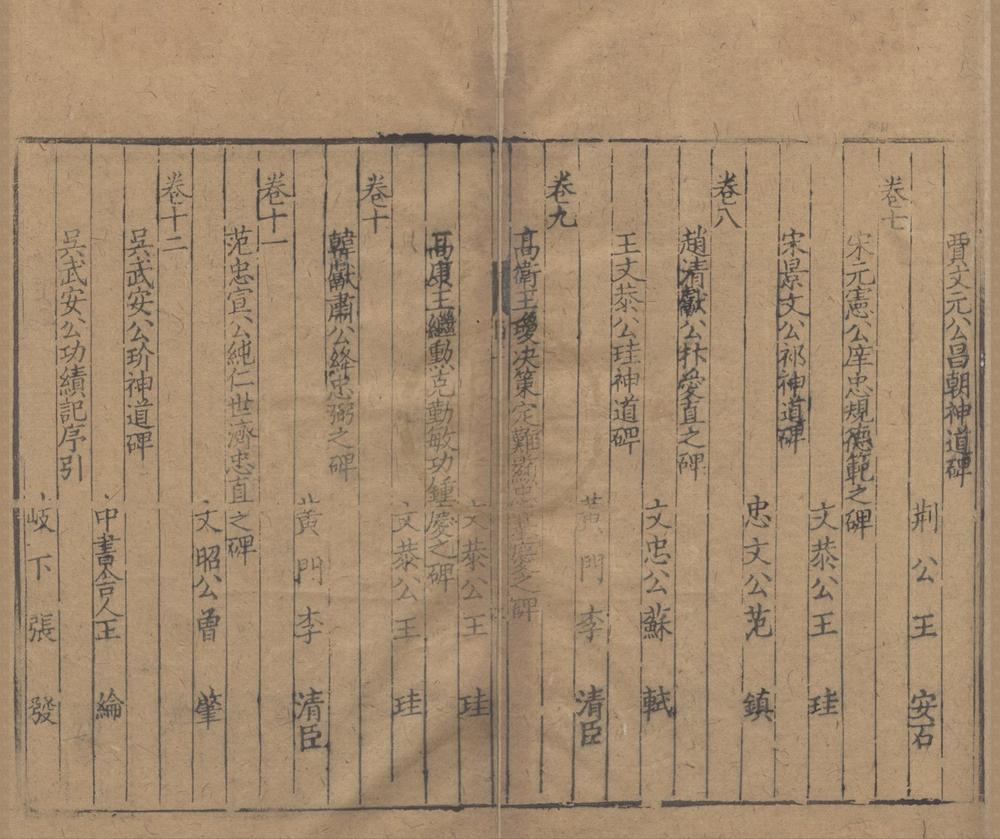 賈文元公昌朝神道碑
荆公王安石
卷七
宋元憲公庠忠規德範之碑
文恭公王珪
宋景文公祁神道碑
忠文公范鎮
卷八
趙清獻公抃愛直之碑
文忠公蘇軾
王文恭公珪神道碑
黃門李清臣
卷九
高衛王瓊决策定難顯忠基慶之碑
文恭公王珪
高康王繼勳克勤敏功鍾慶之碑
文恭公王珪
卷十
韓獻肅公絳忠弼之碑
黃門李清臣
卷十一
范忠宣公純仁世濟忠直之碑
文昭公曾肇
卷十二
吳武安公玠神道碑
中書舍人王綸
吳武安公功績記序引
岐下張發